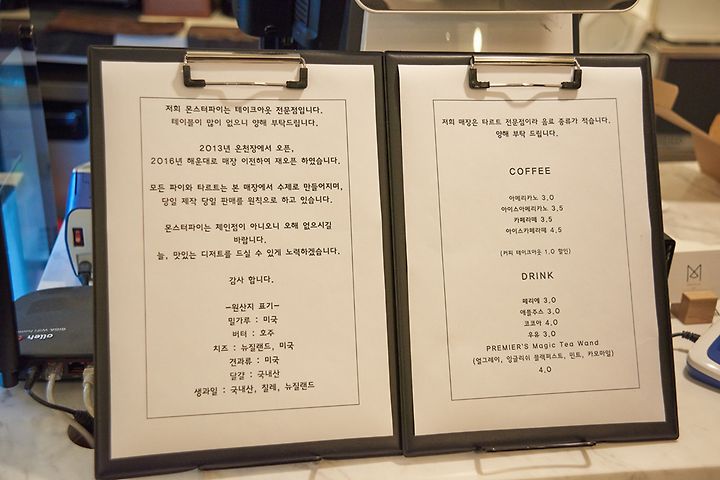 저희 몬스터파이는 테이크아웃 전문점입니다.
테이블이 많이 없으니 양해 부탁드립니다.
2013년 온천장에서 오픈,
2016년 해운대로 매장 이전하여 재오픈 하였습니다.
모든 파이와 타르트는 본 매장에서 수제로 만들어지며,
당일 제작 당일 판매를 원칙으로 하고 있습니다.
몬스터파이는 체인점이 아니오니 오해 없으시길
바랍니다.
늘, 맛있는 디저트를 드실 수 있게 노력하겠습니다.
감사 합니다.
-원산지 표기-
밀가루 : 미국
버터 : 호주
치즈 : 뉴질랜드, 미국
견과류 : 미국
달걀 : 국내산
생과일 : 국내산, 칠레, 뉴질랜드
저희 매장은 타르트 전문점이라 음료 종류가 적습니다.
양해 부탁 드립니다.
COFFEE
아메리카노 3,0
아이스아메리카노 3,5
카페라떼 3,5
아이스카페라떼 4,5
(커피 테이크아웃 1,0 할인)
DRINK
페리에 3,0
애플주스 3,0
코코아 4,0
우유 3,0
PREMIER'S Magic Tea Wand
(얼그레이, 잉글리쉬 블랙퍼스트, 민트, 카모마일)
4,0
olleh
GiGA WiFi home